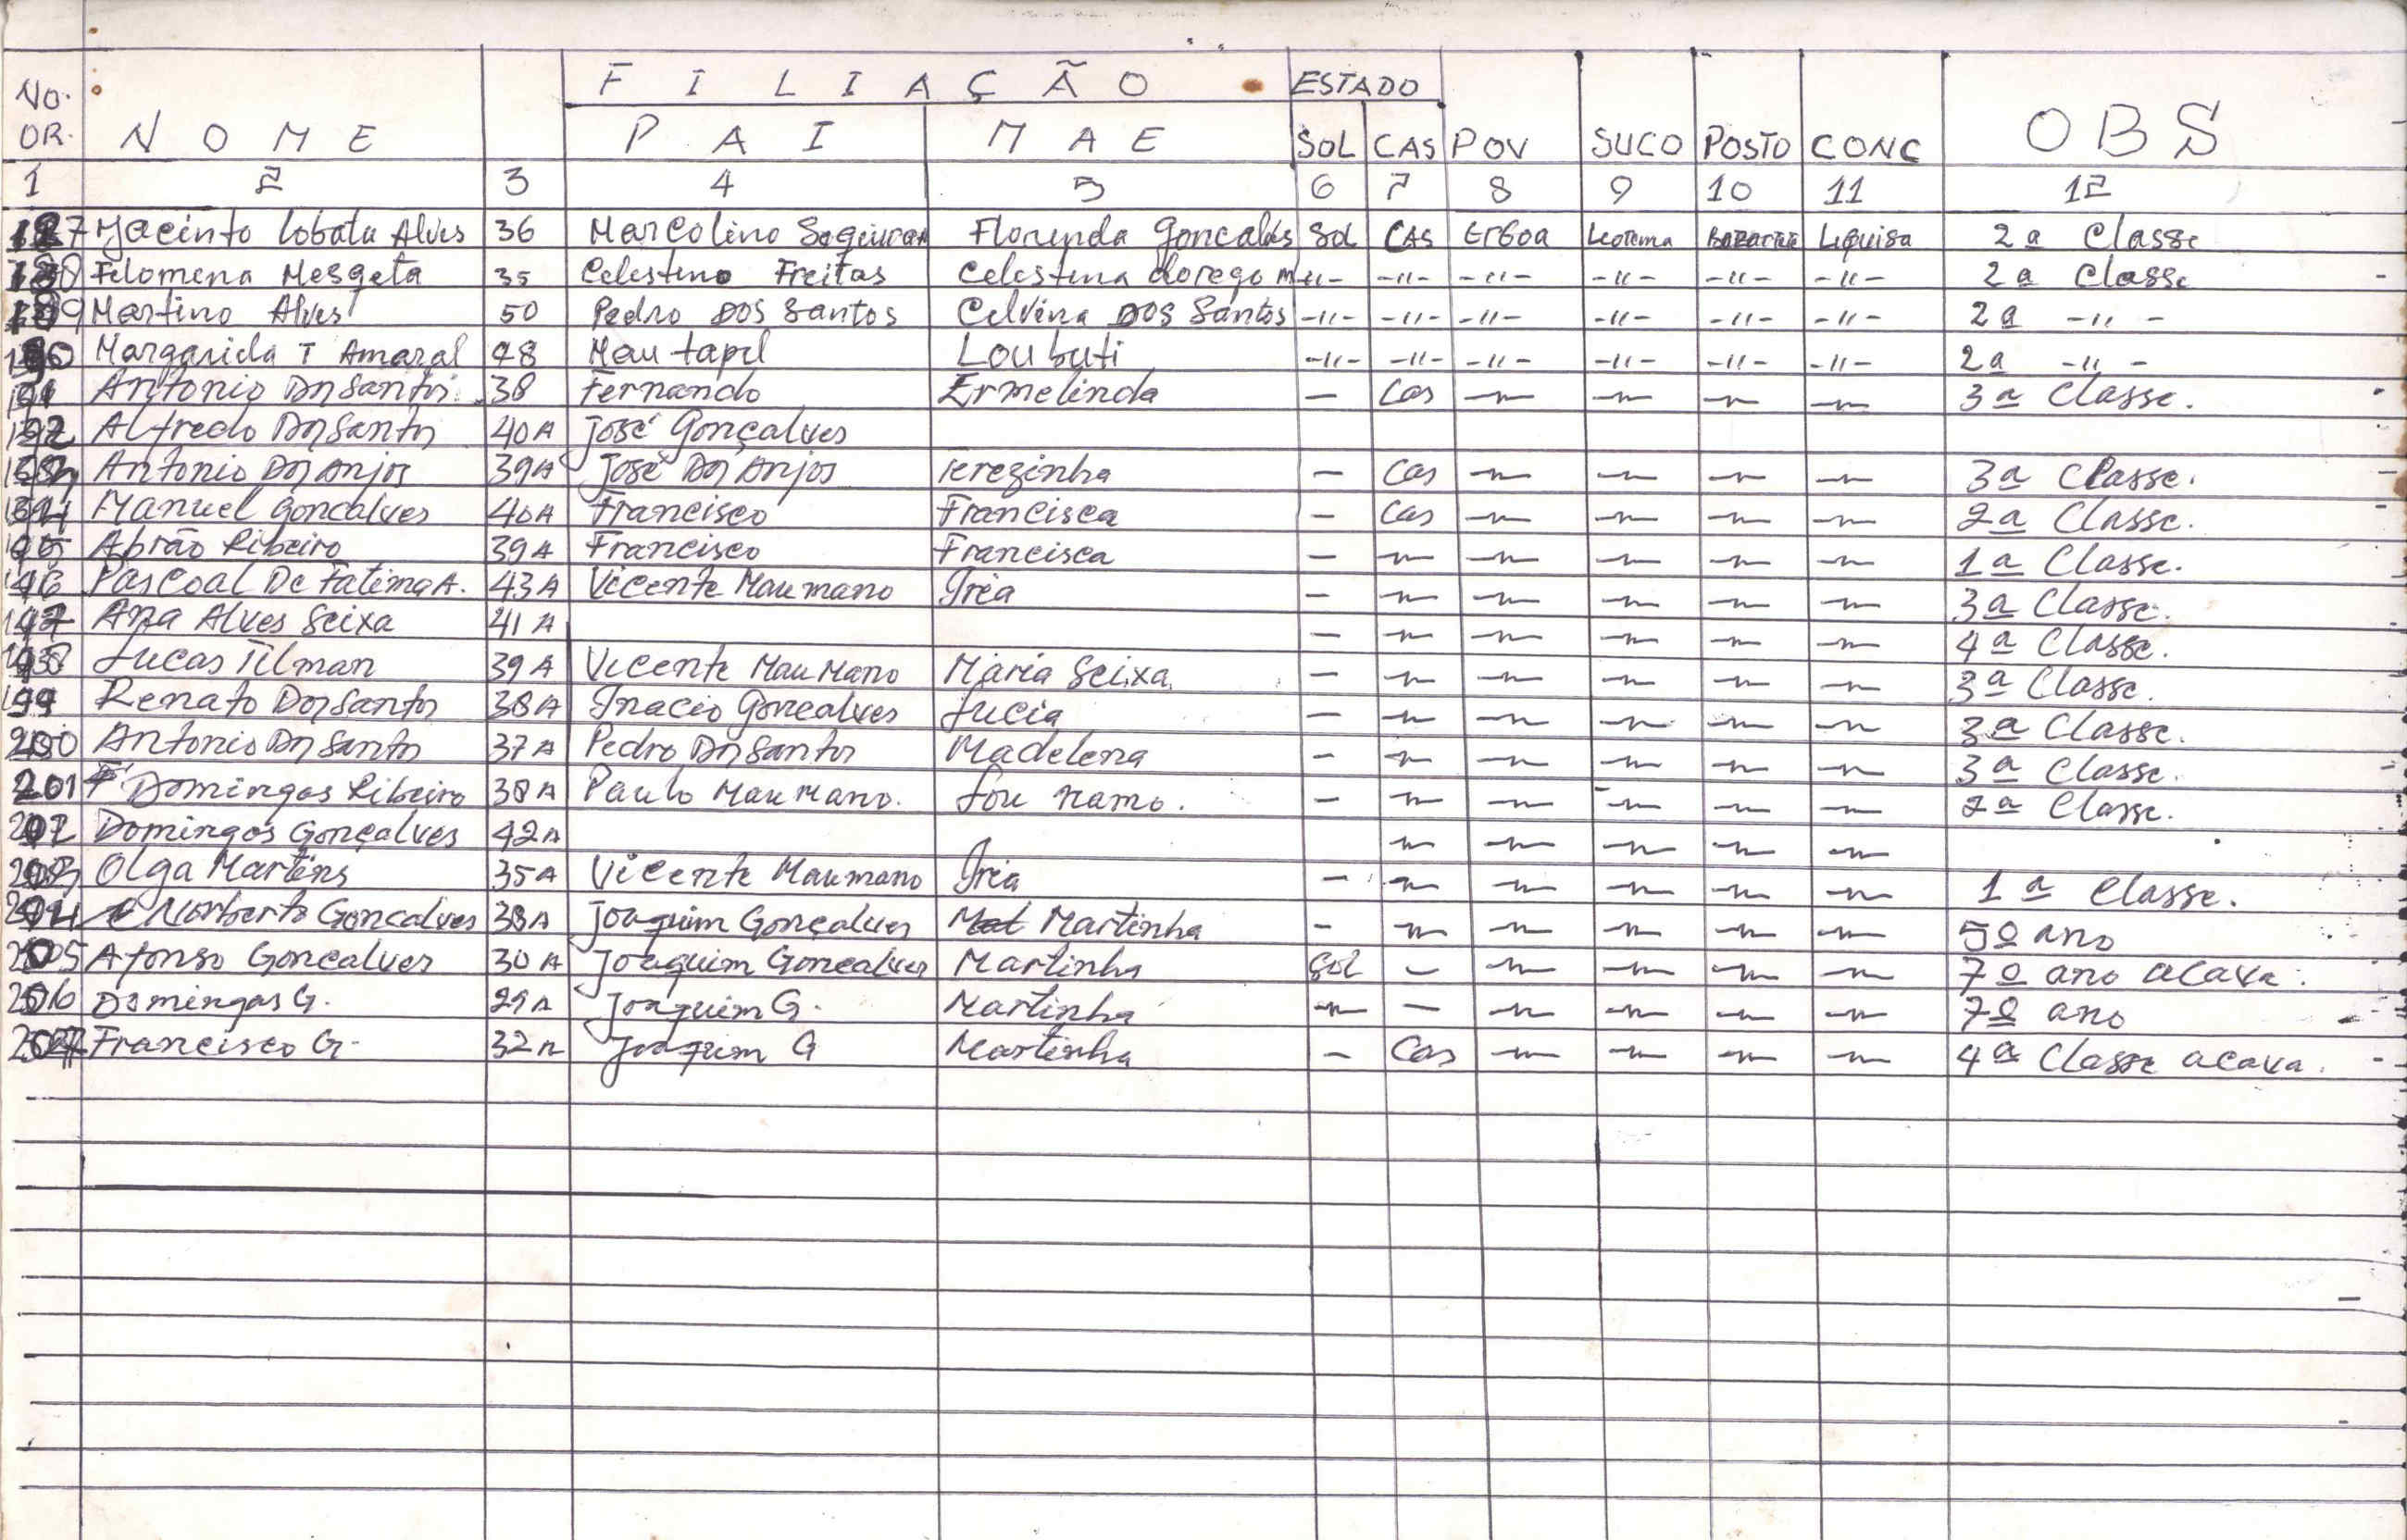 NO. OR. N O M E F I L I A Ç Ã O ESTADO
P A I M A E SOL CAS POV SUCO POSTO CONC OBS
1 2 3 4 5 6 7 8 9 10 11 12
187 Jacinto lobatu Alves 36 Marcolino Florinda Goncalves Sol CAS ErGoa Leotema Liquisa 2a Classe
188 Felomena Mesqeta 35 Celestino Freitas Celestina dorego m -"- -"- -"- -"- -"- -"- 2a Classe
189 Martino Alves 50 Pedro DOS Santos Celvina DOS Santos -"- -"- -"- -"- -"- -"- 2a -"-
190 Margarida T Amaral 48 Mau tapil Loubuti -"- -"- -"- -"- -"- -"- 2a -"-
191 Antonio Dos Santos. 38 Fernando Ermelinda — Cas -"- -"- -"- -"- 3ª Classe.
192 Alfredo Dos Santos 40A José Gonçalves
193 Antonio Dos Anjos 39A José Dos Anjos terezinha — Cas -"- -"- -"- -"- 3ª Classe.
194 Manuel Goncalves 40A Francisco Francisca — Cas -"- -"- -"- -"- 2ª Classe.
195 Abrão Ribeiro 39A Francisco Francisca — -"- -"- -"- -"- -"- 1ª Classe.
196 Pascoal De Fatima A. 43A Vicente Maumano Iria — -"- -"- -"- -"- -"- 3ª Classe.
197 Ana Alves Seixa 41A — -"- -"- -"- -"- -"- 4ª Classe.
198 Lucas Tilman 39A Vicente Mau Mano Maria Seixa. — -"- -"- -"- -"- -"- 3ª Classe.
199 Renato Dos Santos 38A Inacio Goncalves Lucia — -"- -"- -"- -"- -"- 3ª Classe.
200 Antonio Dos Santos 37A Pedro Dos Santos Madelena — -"- -"- -"- -"- -"- 3ª Classe.
201 Domingos Ribeiro 38A Paulo Mau Mano. Lou namo. — -"- -"- -"- -"- -"- 2ª Classe.
202 Domingos Gonçalves 42A -"- -"- -"- -"- -"-
203 Olga Martins 35A Vicente Maumano Iria — -"- -"- -"- -"- -"- 1ª Classe.
204 Norberto Goncalves 38A Joaquim Gonçalves Martinha — -"- -"- -"- -"- -"- 5º ano
205 Afonso Goncalves 30A Joaquim Goncalves Martinha Sol — -"- -"- -"- -"- 7º ano acava.
206 Domingos G. 29A Joaquim G. Martinha -"- — -"- -"- -"- -"- 7º ano
207 Francisco G. 32A Joaquim G Martinha — Cas -"- -"- -"- -"- 4ª Classe acava.